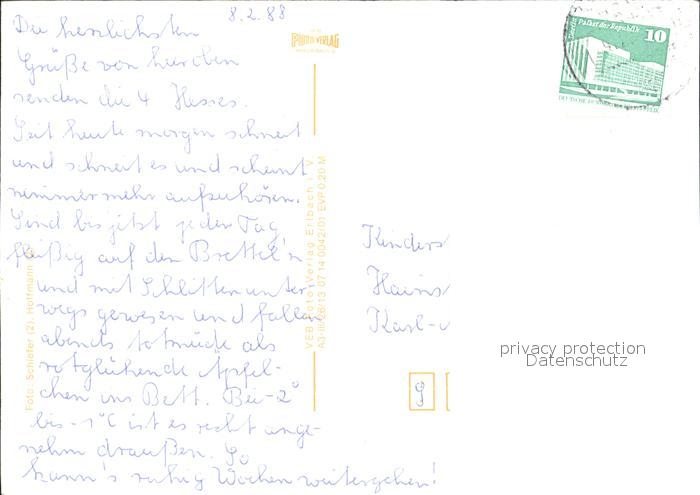 8.2.88
Die herzlichsten
Grüße von hier oben
senden die 4 Hesses.
Seit heute morgen schneit
und schneit es und scheint
nimmermehr aufzuhören.
Sind bis jetzt jeden Tag
fleißig auf den Brettel'n
und mit Schlitten unter-
wegs gewesen und fallen
abends todmüde als
rotglühende Äpfel-
chen ins Bett. Bei -2°
bis -1°C ist es recht ange-
nehm draußen. So
kann's ruhig Wochen weitergehen!
PHOTO-VERLAG
Foto: Schläfer (2), Hoffmann
VEB Foto-Verlag Erlbach i. V.
A3-III/26/13 07 14 0042/01 EVP 0,20 M
Berlin Palast der Republik
10
DEUTSCHE DEMOKRATISCHE REPUBLIK
Kinders
Hains
Karl-
9
privacy protection
Datenschutz